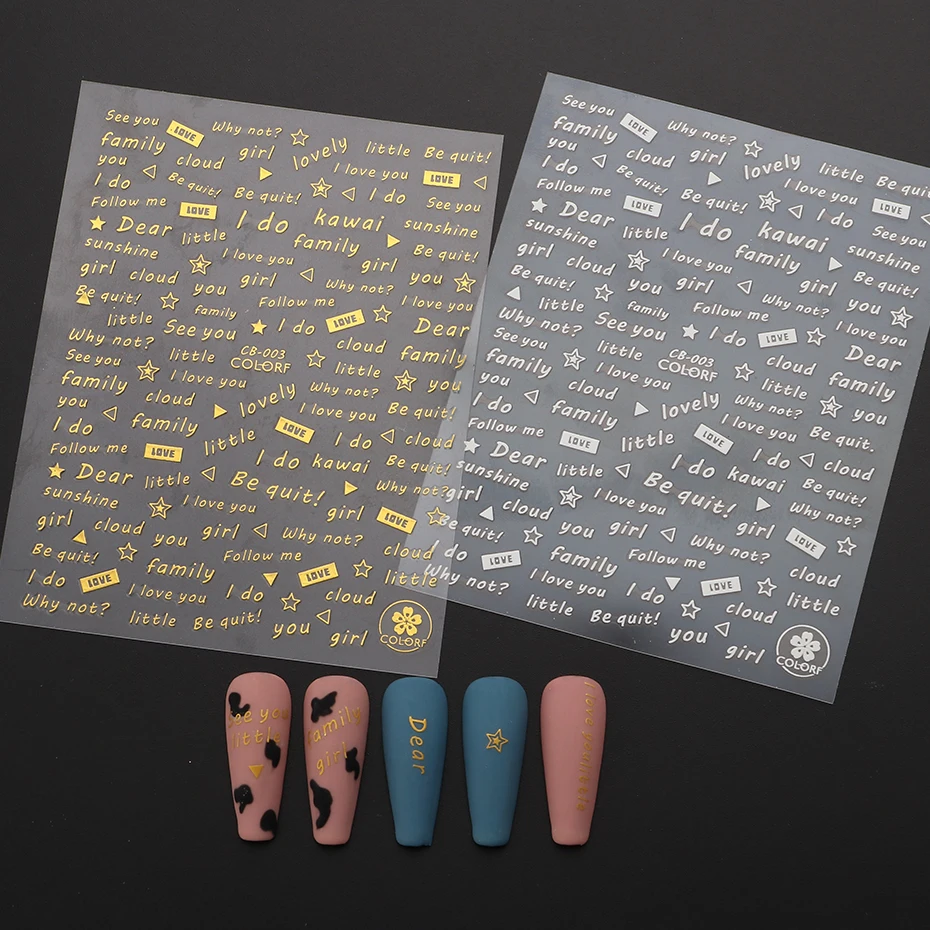 See you LOVE Why not?
family girl lovely little Be quit!
you cloud I love you LOVE
I do Be quit! Be quit! I do See you
Follow me LOVE I do kawai sunshine
Dear little family Be quit!
sunshine I love you girl you
girl cloud you girl Why not?
Be quit! family Follow me I love you
little See you I do LOVE Dear
Why not? CB-003 cloud family
See you little COLORF little you
family I love you Why not?
you cloud lovely I love you Be quit!
I do family LOVE I do cloud
Follow me LOVE little I do kawai Be quit!
Dear little Be quit! Why not?
sunshine I love you girl LOVE
girl cloud you girl Why not? cloud
Be quit! family Follow me little
I do LOVE I love you I do LOVE cloud
Why not? little Be quit! you girl
COLORF
See you LOVE Why not?
family girl lovely little Be quit
you cloud I love you LOVE
I do Be quit! Be quit! I do See you
Follow me LOVE I do kawai sunshine
Dear little family Be quit!
sunshine I love you girl you
girl cloud you girl Why not?
Be quit! family Follow me I love you
little See you I do LOVE Dear
Why not? CB-003 cloud family
See you little COLORF little you
family I love you Why not?
you cloud lovely I love you Be quit.
I do family LOVE I do cloud
Follow me LOVE little I do kawai Be quit!
Dear little Be quit! Why not?
sunshine I love you girl LOVE
girl cloud you girl Why not? cloud
Be quit! family Follow me little
I do LOVE I love you I do LOVE cloud
Why not? little Be quit! you girl
COLORF
See you
little
family
girl
Dear
I love you